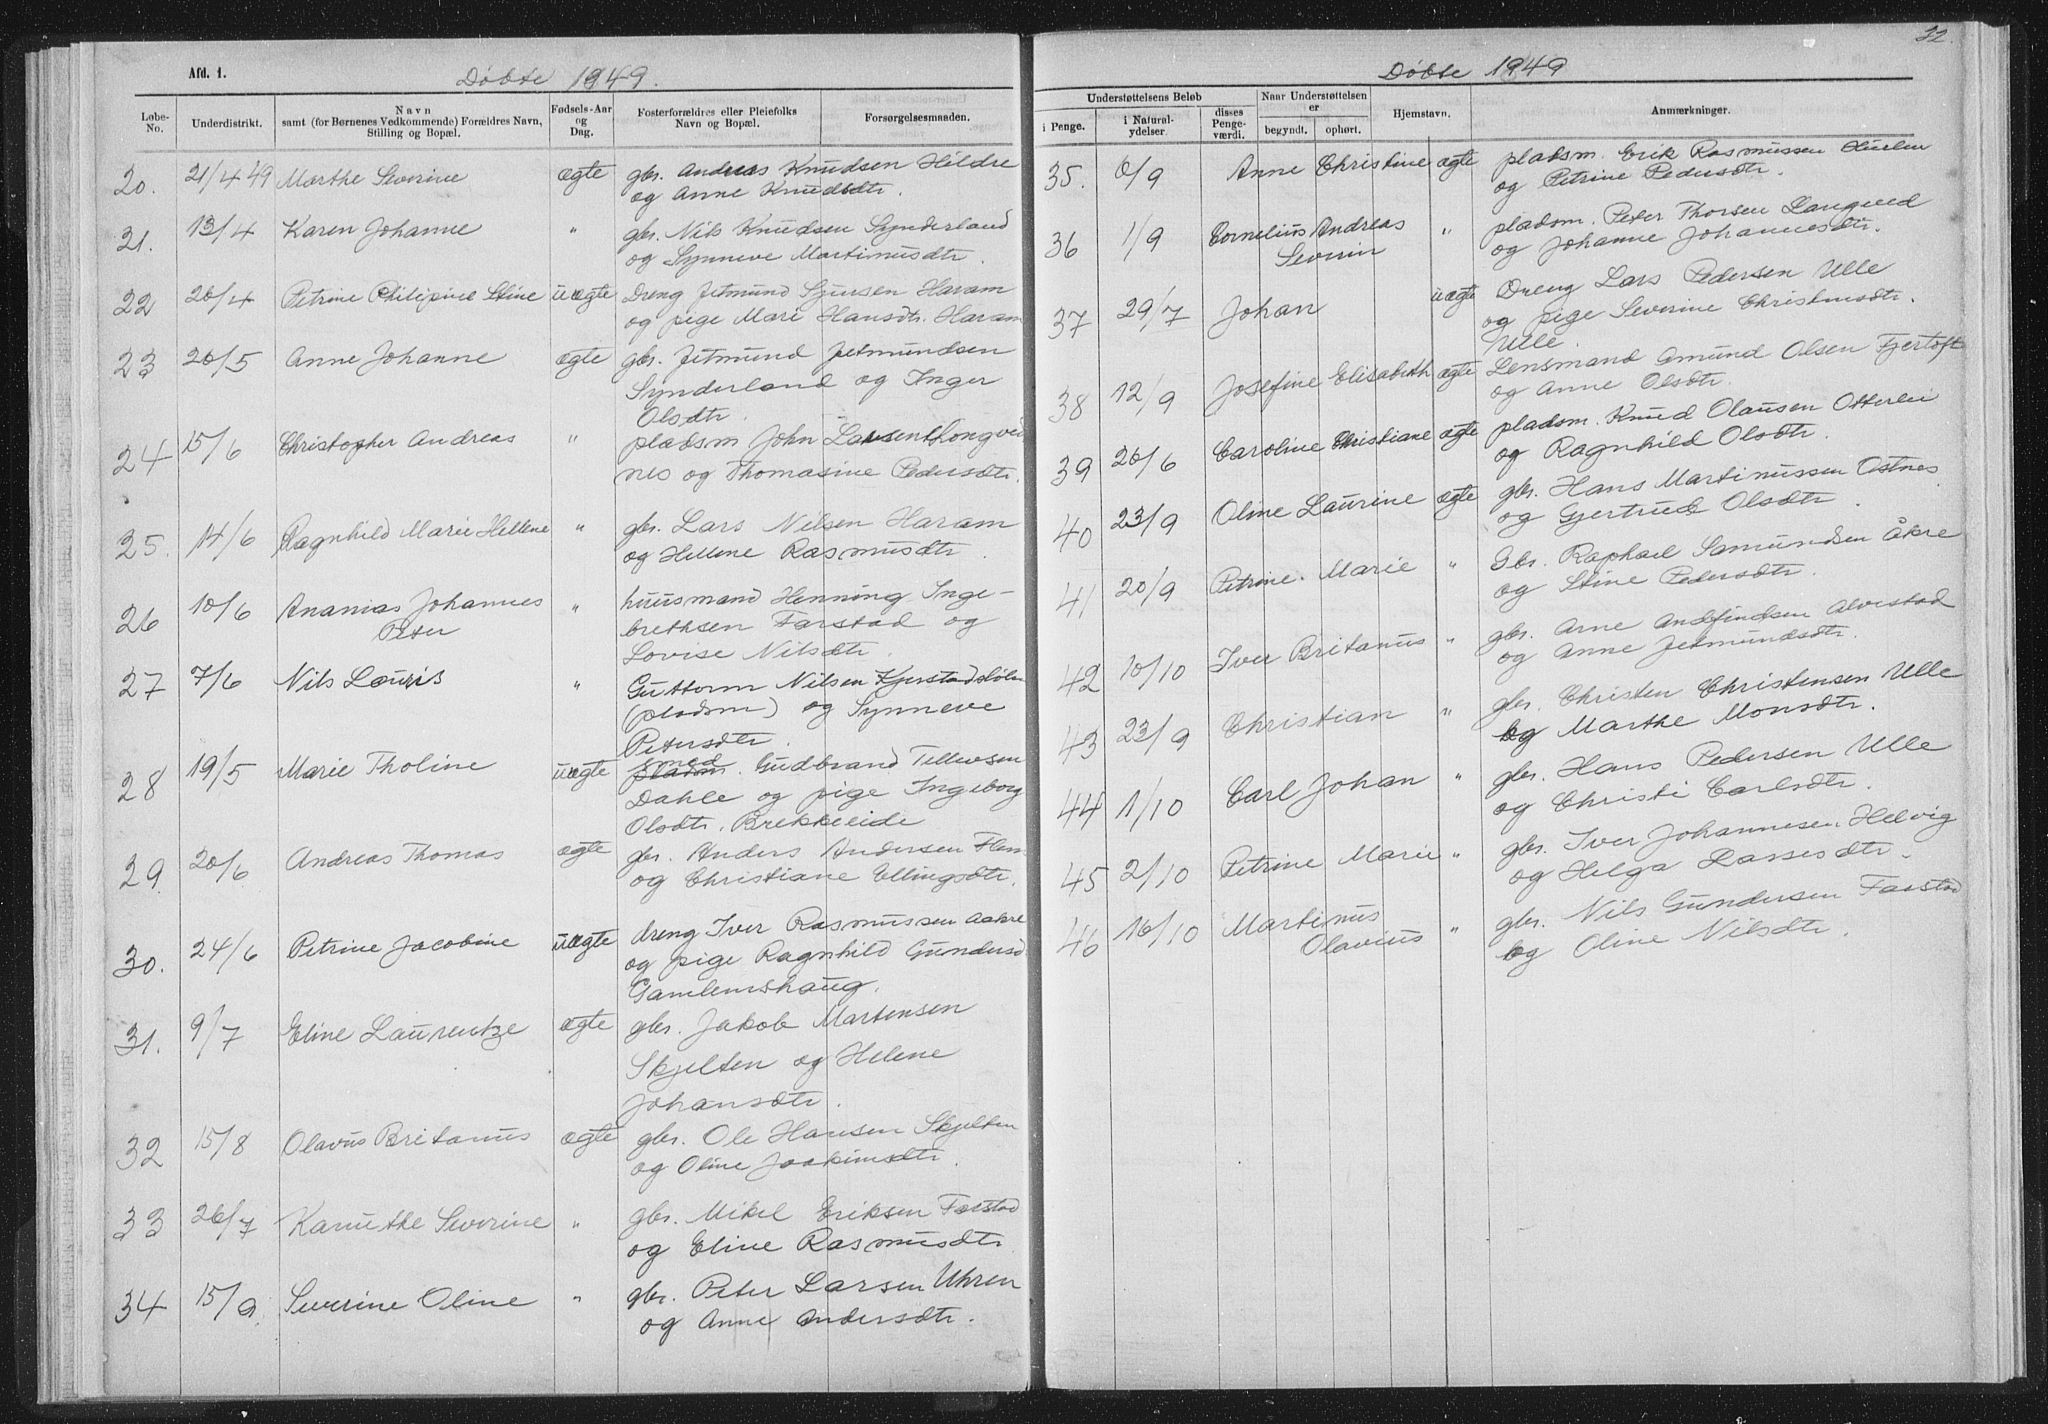 Afd. 1.
Døbte 1949.
Løbe-No.
Underdistrikt.
Navn
samt (for Børnenes Vedkommende) Forældres Navn,
Stilling og Bopæl.
Fødsels-Aar
og
Dag.
Fosterforældres eller Pleiefolks
Navn og Bopæl.
Forsørgelsesmaaden.
20. 21/4 49 Marthe Severine ægte gbr. Andreas Knudsen Hildre
og Anne Knudsdtr.
21. 13/4 Karen Johanne " gbr. Nils Knudsen Synderland
og Synneve Martinusdtr.
22 26/4 Petrine Philipine Stine uægte Dreng Jetmund Sjursen Haram
og pige Mari Hansdtr. Haram
23 26/5 Anne Johanne ægte gbr. Jetmund Jetmundsen
Synderland og Inger
Olsdtr.
24 15/6 Christopher Andreas " pladsm John Larsen Longvid
nes og Thomasine Pedersdtr.
25. 14/6 Ragnhild Marie Hellene " gbr. Lars Nilsen Haram
og Hellene Rasmusdtr.
26 10/6 Ananias Johannes
Peter " huusmand Henning Inge-
brethsen Farstad og
Lovise Nilsdtr.
27 7/6 Nils Louris " Guttorm Nilsen
(pladsm) og Synneve
Petersdtr.
28 19/5 Marie Tholine uægte pladsm. Gudbrand Tellevsen
Dahle og pige Ingeborg
Olsdtr. Brekkeeide
29. 20/6 Andreas Thomas ægte gbr. Anders Andersen Flem
og Christiane Ellingsdtr.
30. 24/6 Petrine Jacobine uægte dreng Iver Rasmussen Aakre
og pige Ragnhild Gundersd
Gamlemshaug.
31. 9/7 Eline Laurentze ægte gbr. Jakob Martensen
Skjelten og Helene
Johansdtr.
32 15/8 Olavus Britanus ægte gbr. Ole Hansen Skjelten
og Oline Joakimsdtr.
33 26/7 Kanuthe Severine " gbr. Mikel Eriksen Farstad
og Eline Rasmusdtr
34 15/9. Severine Oline " gbr. Peter Larsen Uhren
og Anne Andersdtr.
22.
Døbte 1949
Understøttelsens Beløb
i Penge.
i Natural-
ydelser.
disses
Penge-
værdi.
Naar Understøttelsen
er
begyndt.
ophørt.
Hjemstavn.
Anmærkninger.
35. 6/9 Anne Christine ægte pladsm. Erik Rasmussen Huslen
og Petrine Pedersdtr.
36 1/9 Cornelius Andreas
Severin " pladsm. Peter Thorsen Langved
og Johanne Johannesdtr.
37 29/7 Johan uægte Dreng Lars Pedersen Ulle
og pige Severine Christensdtr.
Ulle.
38 12/9 Josefine Elisabeth ægte Lensmand Amund Olsen Fjertoft
og Anne Olsdtr.
39 26/6 Caroline Christiane ægte pladsm. Knud Olausen Otterlei
og Ragnhild Olsdtr.
40 23/9 Oline Laurine ægte gbr. Hans Martinussen Østnes
og Gjertrud Olsdtr.
41 20/9 Petrine. Marie " Gbr. Raphael Samundsen Åkre
og Stine Pedersdtr.
42 10/10 Iver Britanus " gbr. Arne Andfindsen Alvestad
og Anne Jetmundsdtr.
43 23/9 Christian " gbr. Christen Christensen Ulle
og Marthe Monsdtr.
44 1/10 Carl Johan " gbr. Hans Pedersen Ulle
og Christi Carlsdtr.
45 2/10 Petrine Marie " gbr. Iver Johannesen Helvig
og Helga Lassesdtr.
46 16/10 Martinus
Olavius " gbr. Nils Gundersen Farstad
og Oline Nilsdtr.